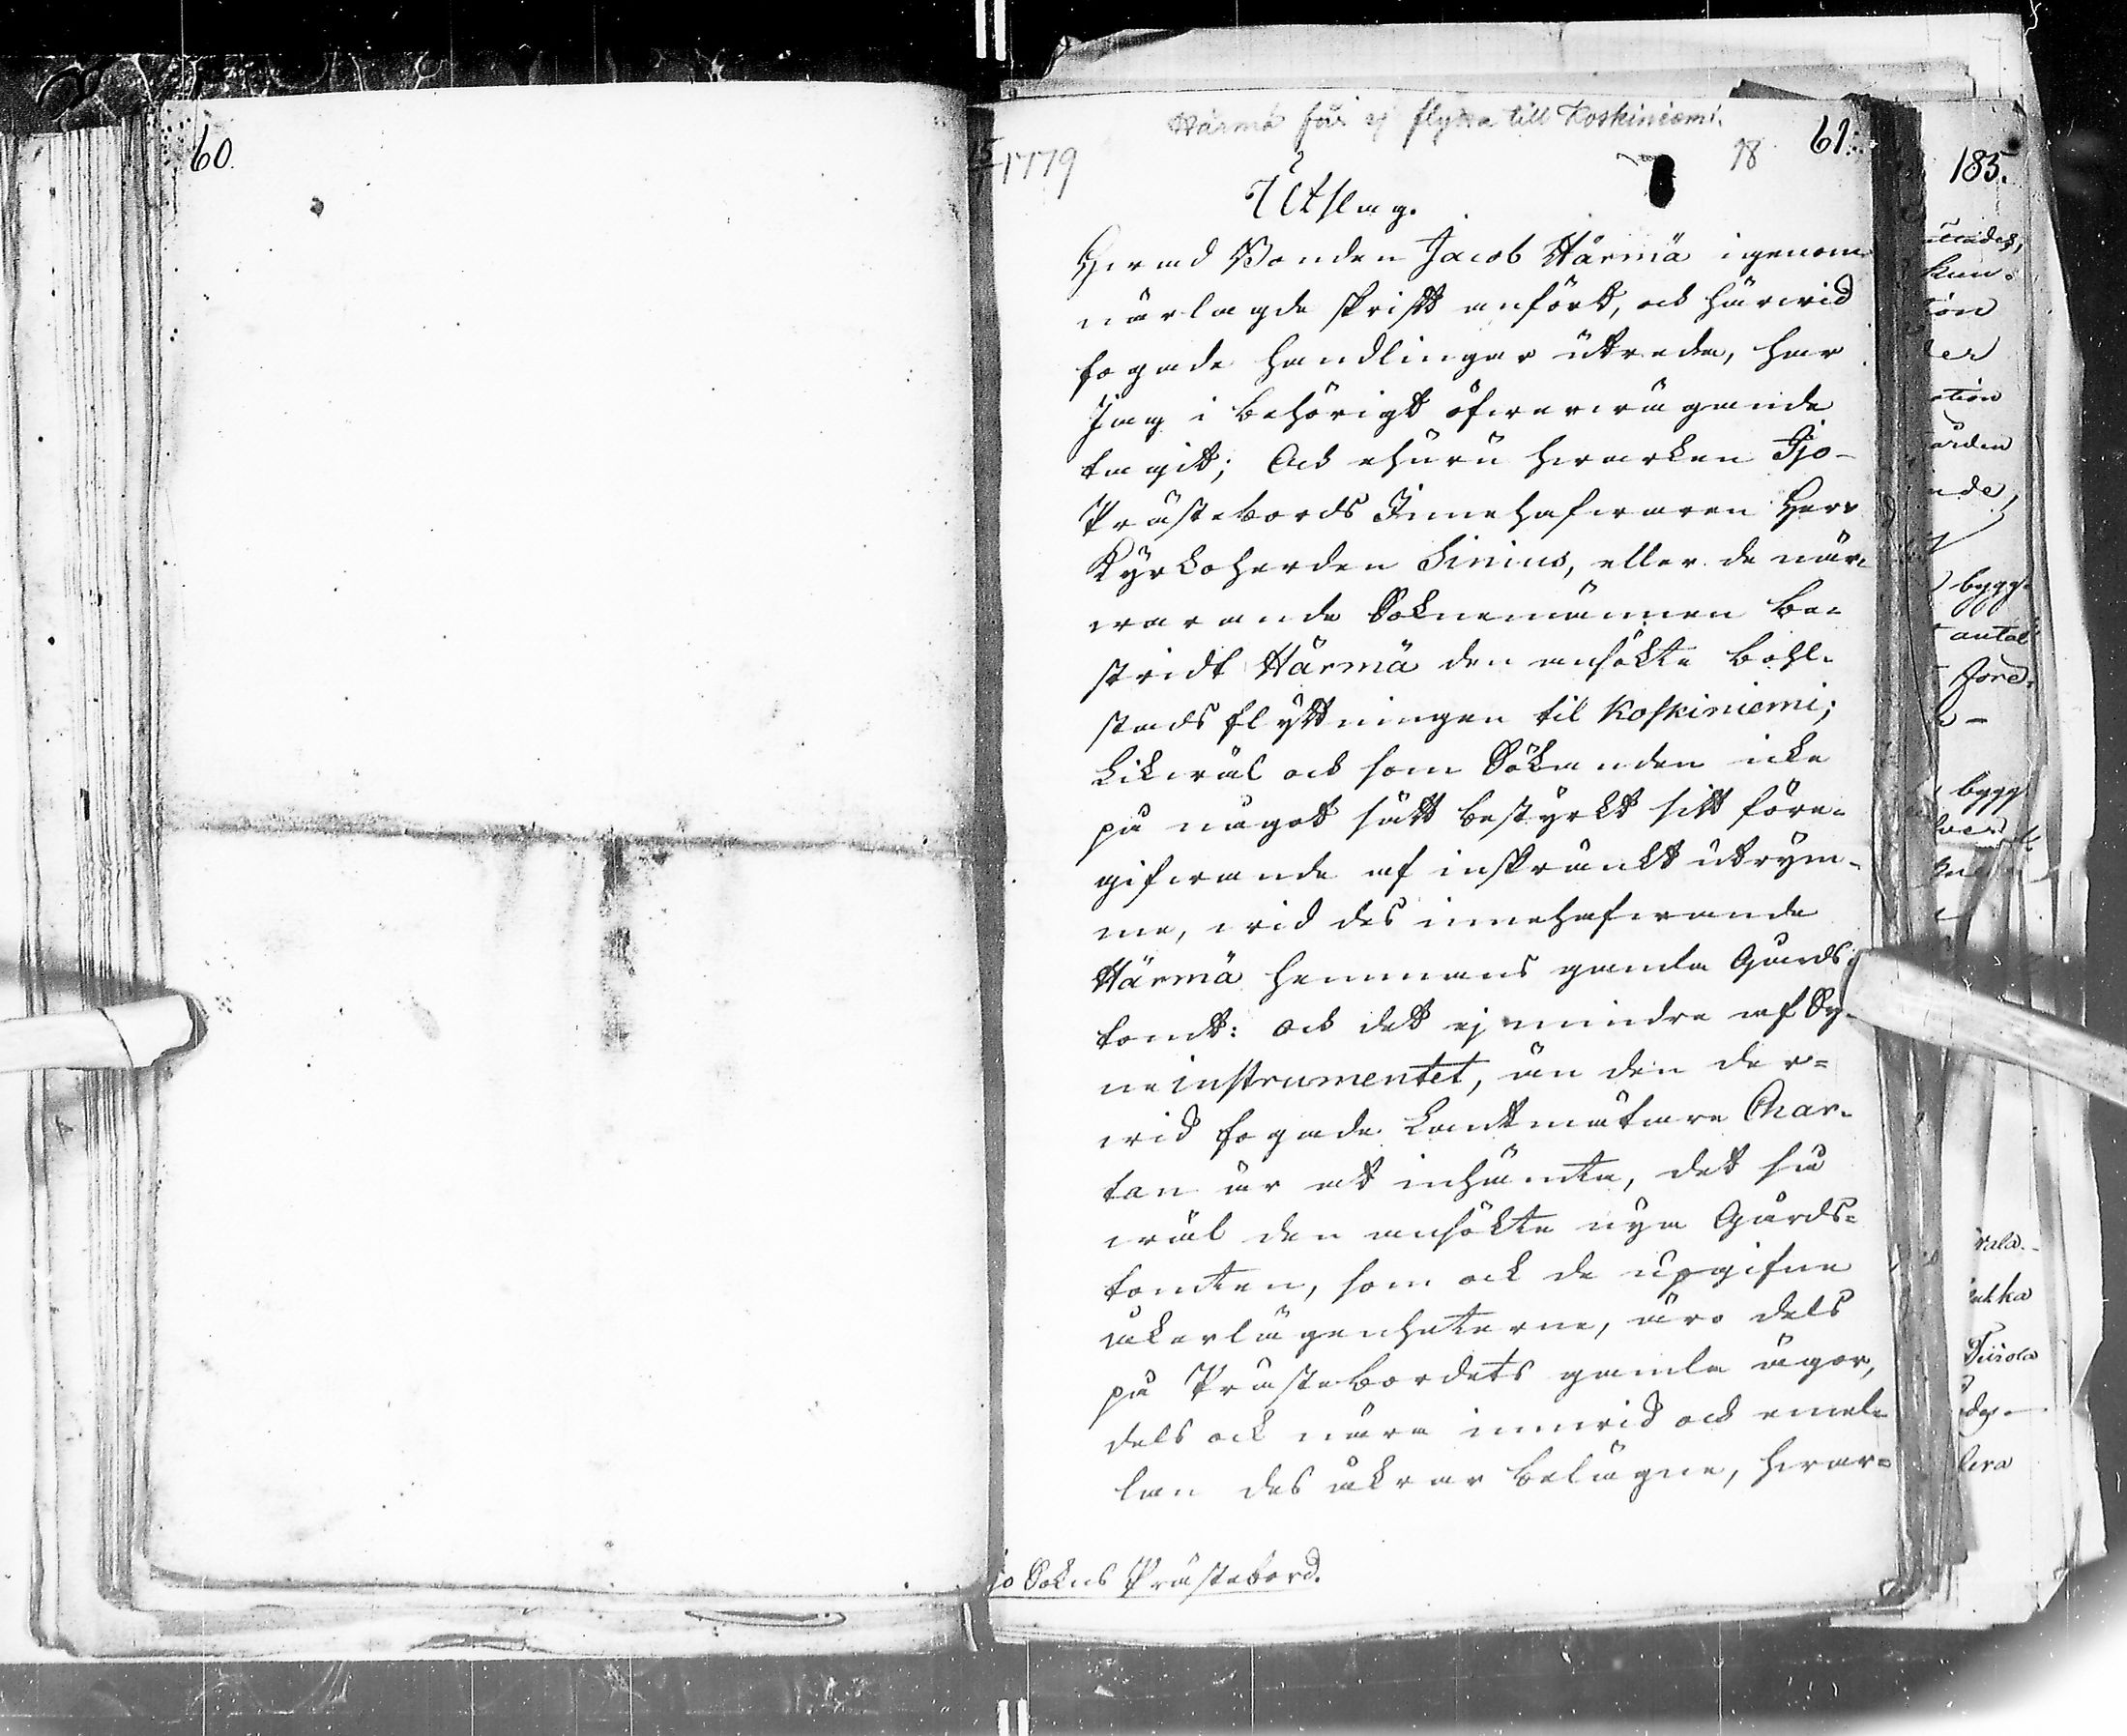 60.
Härmä får ej flytta till Koskiniemi.
1779
18
61.
Utslag.
Hwad Bonden Jacob Härmä igenom
närlagde skrift anfördt, och härwid
fogade handlingar utreda, har
Jag i behörigt öfwerwägande
tagit; Och ehuru hwarken Ijo-
Prästebords Innehafwaren Herr
Kyrkoherden Sinius, eller de när-
warande Soknemännen be-
stridt Härmä den ansökte bohl-
stads flyttningen til Koskiniemi;
Likwäl och som Sökanden icke
på något sätt bestyrkt sitt före-
gifwande af inskränkt utrym-
me, wid des innehafwande
Härmä hemmans gamla Gårds-
tomt: Och det ej mindre af Sy-
neinstrumentet, än den der-
wid fogade Landtmätare Char-
tan är at inhämta, det så
wäl den ansökte nya Gårds-
tomten, som ock de upgifne
åkerlägenheterne, äro dels
på Prästebordets gamla ägor,
dels ock nära inwid och emel-
lan des åkrar belägne, hwar-
jo Sokns Prästebord.
185.
bygg-
antal
förd-
bygg
Tiirola